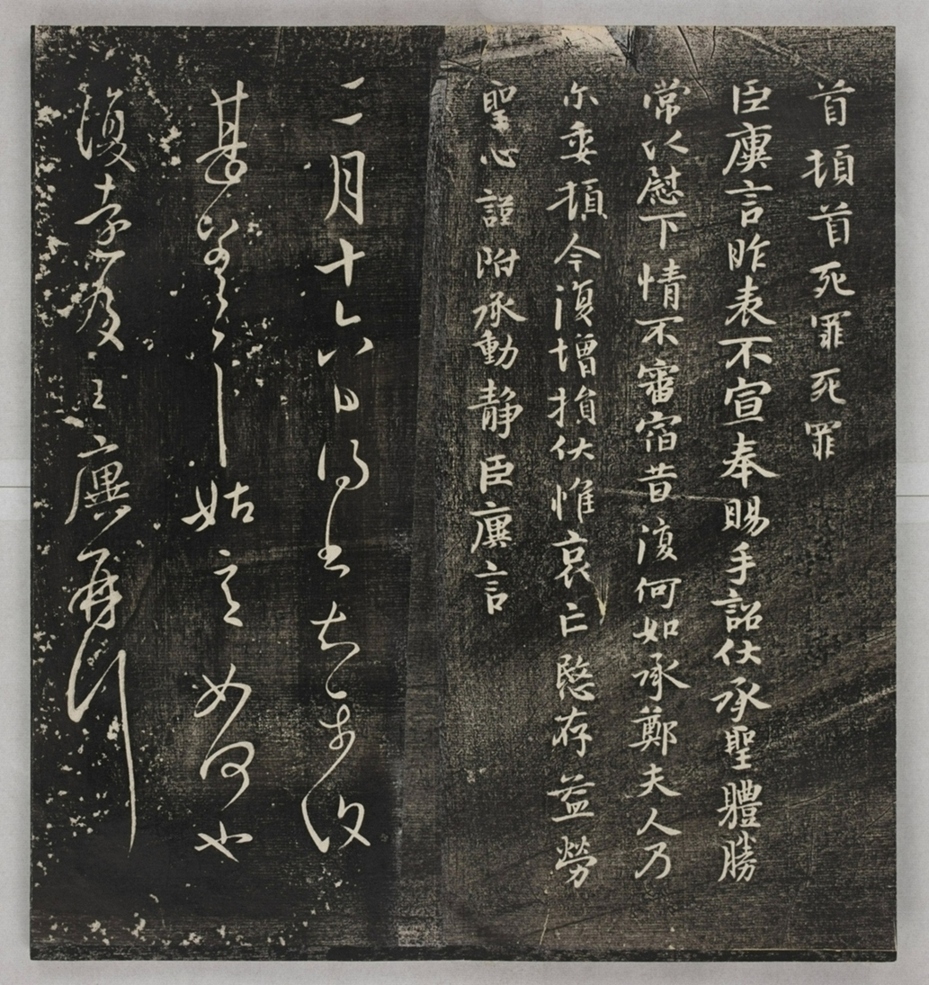 首頓首死罪死罪
臣廙言昨表不宣奉賜手詔伏承聖體勝
常以慰下情不審宿昔復何如承鄭夫人乃
尒委頓今復增損伏惟哀亡愍存益勞
聖心謹附承動靜臣廙言
二月十六日得書知
甚 姑 如何也
復 廙再拜